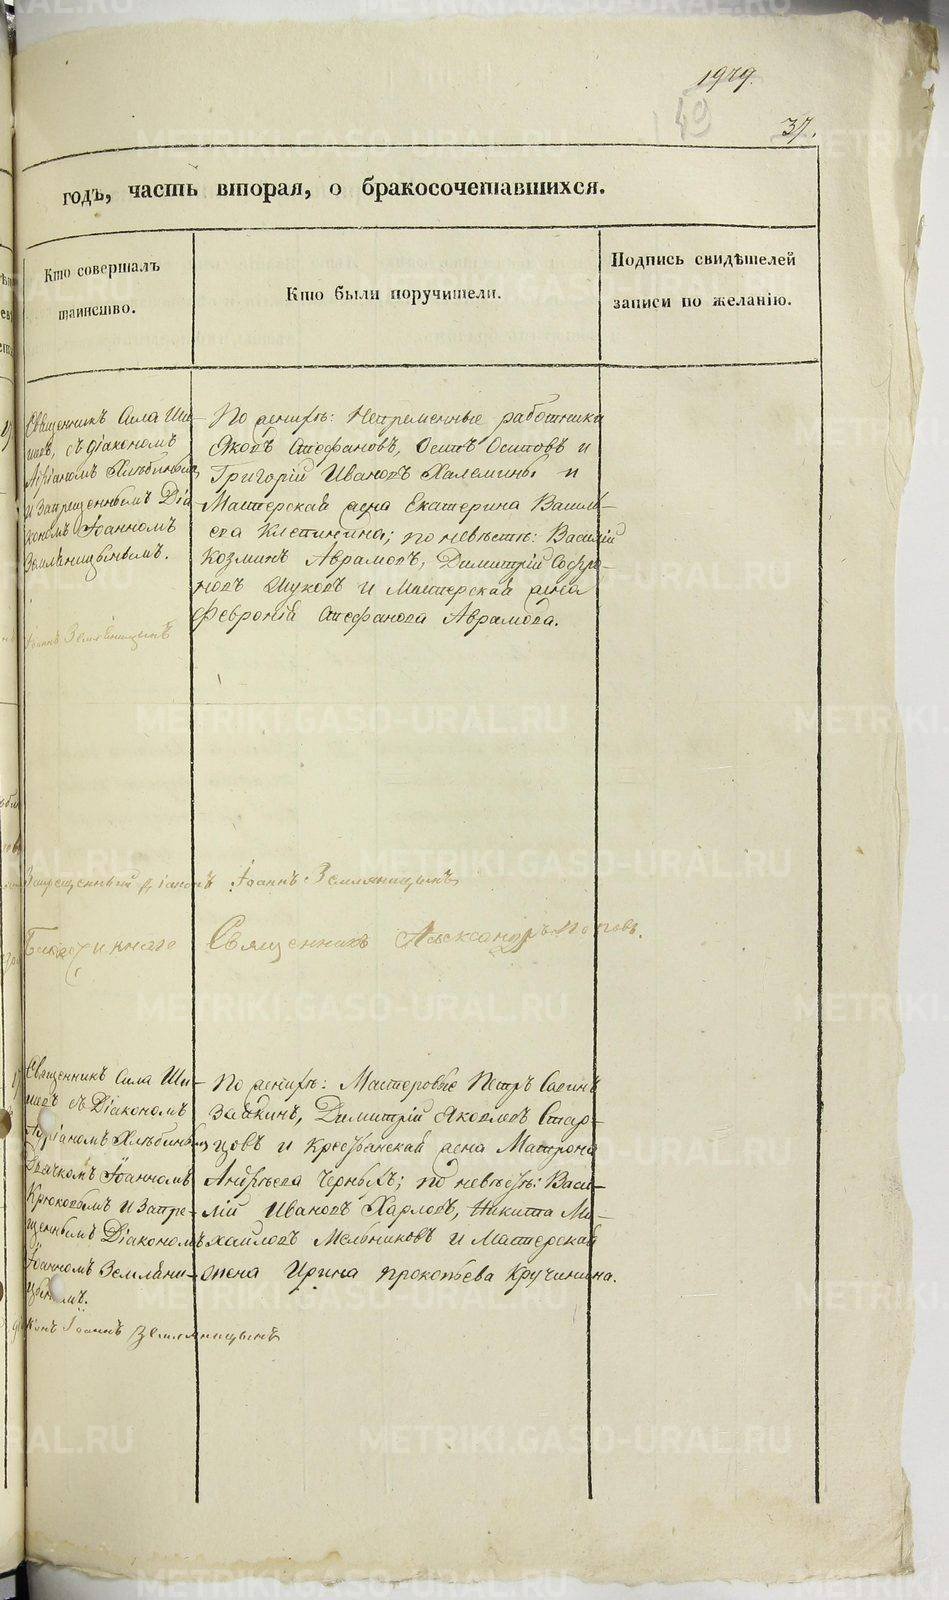 1949.
49
37.
годъ, часть вторая, о бракосочетавшихся.
Кто совершалъ
таинство.
Кто были поручители.
Подпись свидѣтелей
записи по желанію.
Священникъ Сила Ши-
шевъ, съ діакономъ
Адріаномъ Хлѣбинымъ
и Запрещеннымъ Діа-
кономъ Іоанномъ
Земляницынымъ.
Іоаннъ Земляницынъ
По женихѣ: Непременные работники
Яковъ Стефановъ, Осипъ Осиповъ и
Григорій Ивановъ Халемины и
Мастерская жена Екатерина Василь-
ева Клепинина; по невѣстѣ: Василій
Козминъ Аврамовъ, Димитрій Софро-
новъ Жуковъ и Мастерская жена
Февронія Стефанова Аврамова.
Запрещенный діаконъ Іоаннъ Земляницынъ
Священникъ Александръ Поповъ.
Священникъ Сила Ши-
шевъ съ Діакономъ
Адріаномъ Хлѣбинымъ,
Дьячкомъ Іоанномъ
Крюковымъ и Запре-
щеннымъ Діакономъ
Іоанномъ Земляни-
цынымъ.
Іоаннъ Земляницынъ
По женихѣ: Мастеровые Петръ Савинъ
Зайкинъ, Димитрій Яковлевъ Стар-
цовъ и Крестьянская жена Матрона
Андрѣева Черныхъ; по невѣстѣ: Васи-
лій Ивановъ Харловъ, Никита Ми-
хаиловъ Мельниковъ и Мастерская
жена Ирина Прокопьева Кручинина.
METRIKI.GASO-URAL.RU